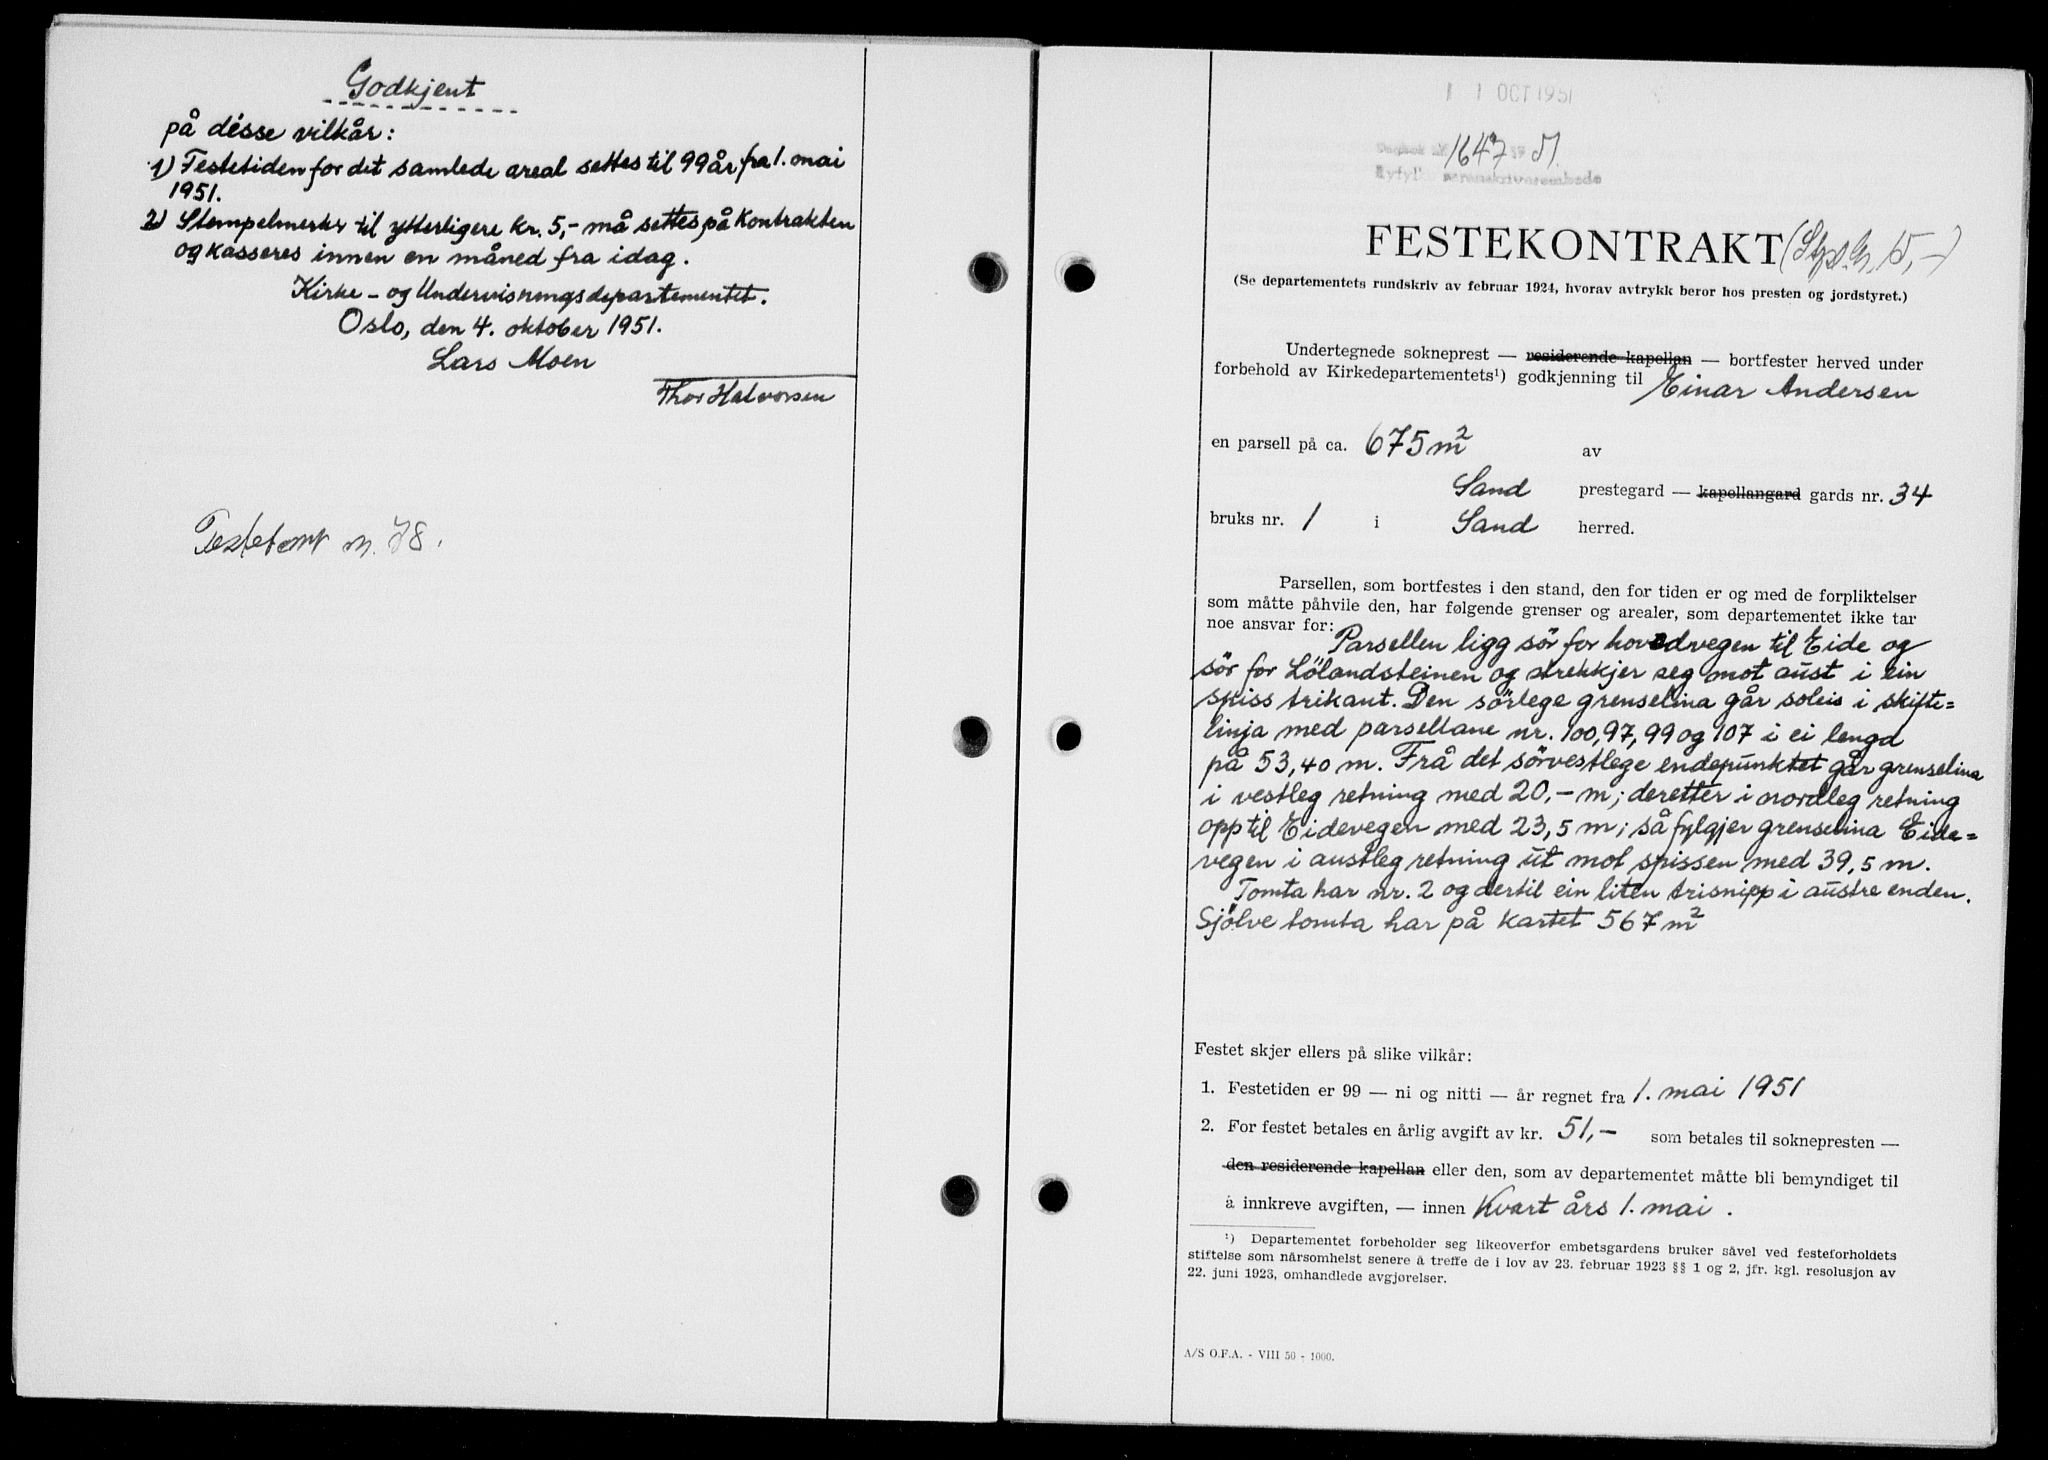 Godkjent
på désse vilkår:
1) Festetiden for det samlede areal settes til 99 år fra 1. mai
1951.
2) Stempelmerker til ytterligere kr. 5,- må settes på kontrakten
og kasseres innen en måned fra idag.
Kirke- og Undervisningsdepartementet.
Oslo, den 4. oktober 1951.
Lars Moen
Thor Halvorsen
n. 78.
1 1 OCT 1951
1647 51.
FESTEKONTRAKT
(Se departementets rundskriv av februar 1924, hvorav avtrykk beror hos presten og jordstyret.)
Undertegnede sokneprest — residerende kapellan — bortfester herved under
forbehold av Kirkedepartementets¹) godkjenning til Einar Andersen
en parsell på ca. 675 m² av
Sand prestegard — kapellangard gards nr. 34
bruks nr. 1 i Sand herred.
Parsellen, som bortfestes i den stand, den for tiden er og med de forpliktelser
som måtte påhvile den, har følgende grenser og arealer, som departementet ikke tar
noe ansvar for: Parsellen ligg sör for hovedvegen til Eide og
sör for Lölandsteinen og strekkjer seg mot aust i ein
spiss trikant. Den sörlege grenselina går soleis i skifte=
linja med parsellane nr. 100, 97, 99 og 107 i ei lengd
på 53,40 m. Frå det sörvestlege endepunktet går grenselina
i vestleg retning med 20,- m; deretter i nordleg retning
opp til Eidevegen med 23,5 m; så fylgjer grenselina Eide=
vegen i austleg retning ut mot spissen med 39,5 m.
Tomta har nr. 2 og dertil ein liten trisnipp i austre enden.
Sjölve tomta har på kartet 567 m²
Festet skjer ellers på slike vilkår:
1. Festetiden er 99 — ni og nitti — år regnet fra 1. mai 1951
2. For festet betales en årlig avgift av kr. 51,- som betales til soknepresten —
den residerende kapellan eller den, som av departementet måtte bli bemyndiget til
å innkreve avgiften, — innen kvart års 1. mai.
¹) Departementet forbeholder seg likeoverfor embetsgardens bruker såvel ved festeforholdets
stiftelse som nårsomhelst senere å treffe de i lov av 23. februar 1923 §§ 1 og 2, jfr. kgl. resolusjon av
22. juni 1923, omhandlede avgjørelser.
A/S O.F.A. - VIII 50 - 1000.